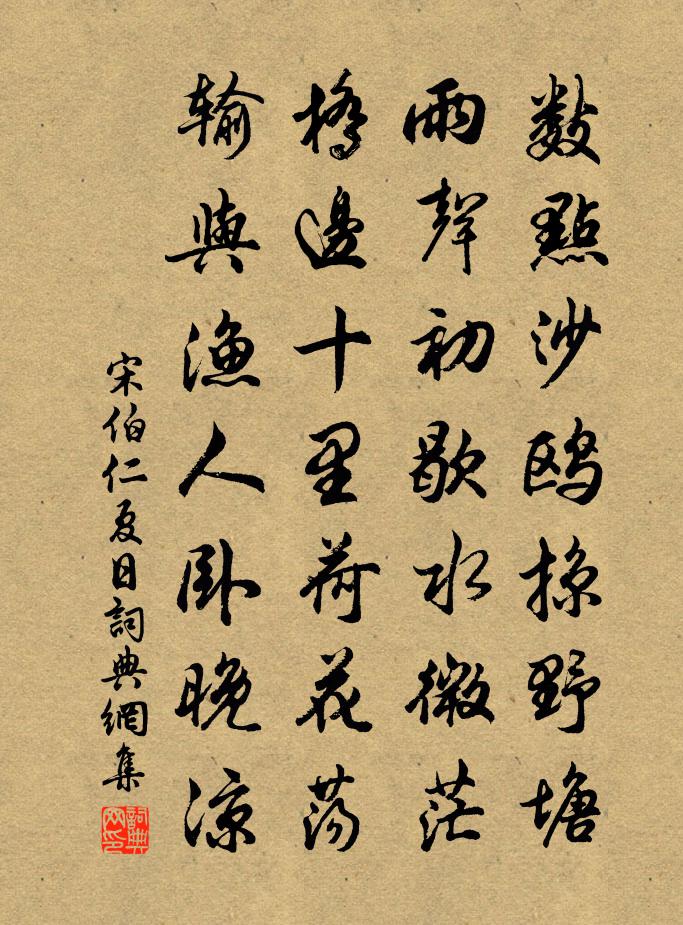 數點沙鷗掠野塘
雨聲初歇水微茫
橋邊十里荷花蕩
輸與漁人臥晚涼
宋伯仁夏日詞典網集
詞典网印